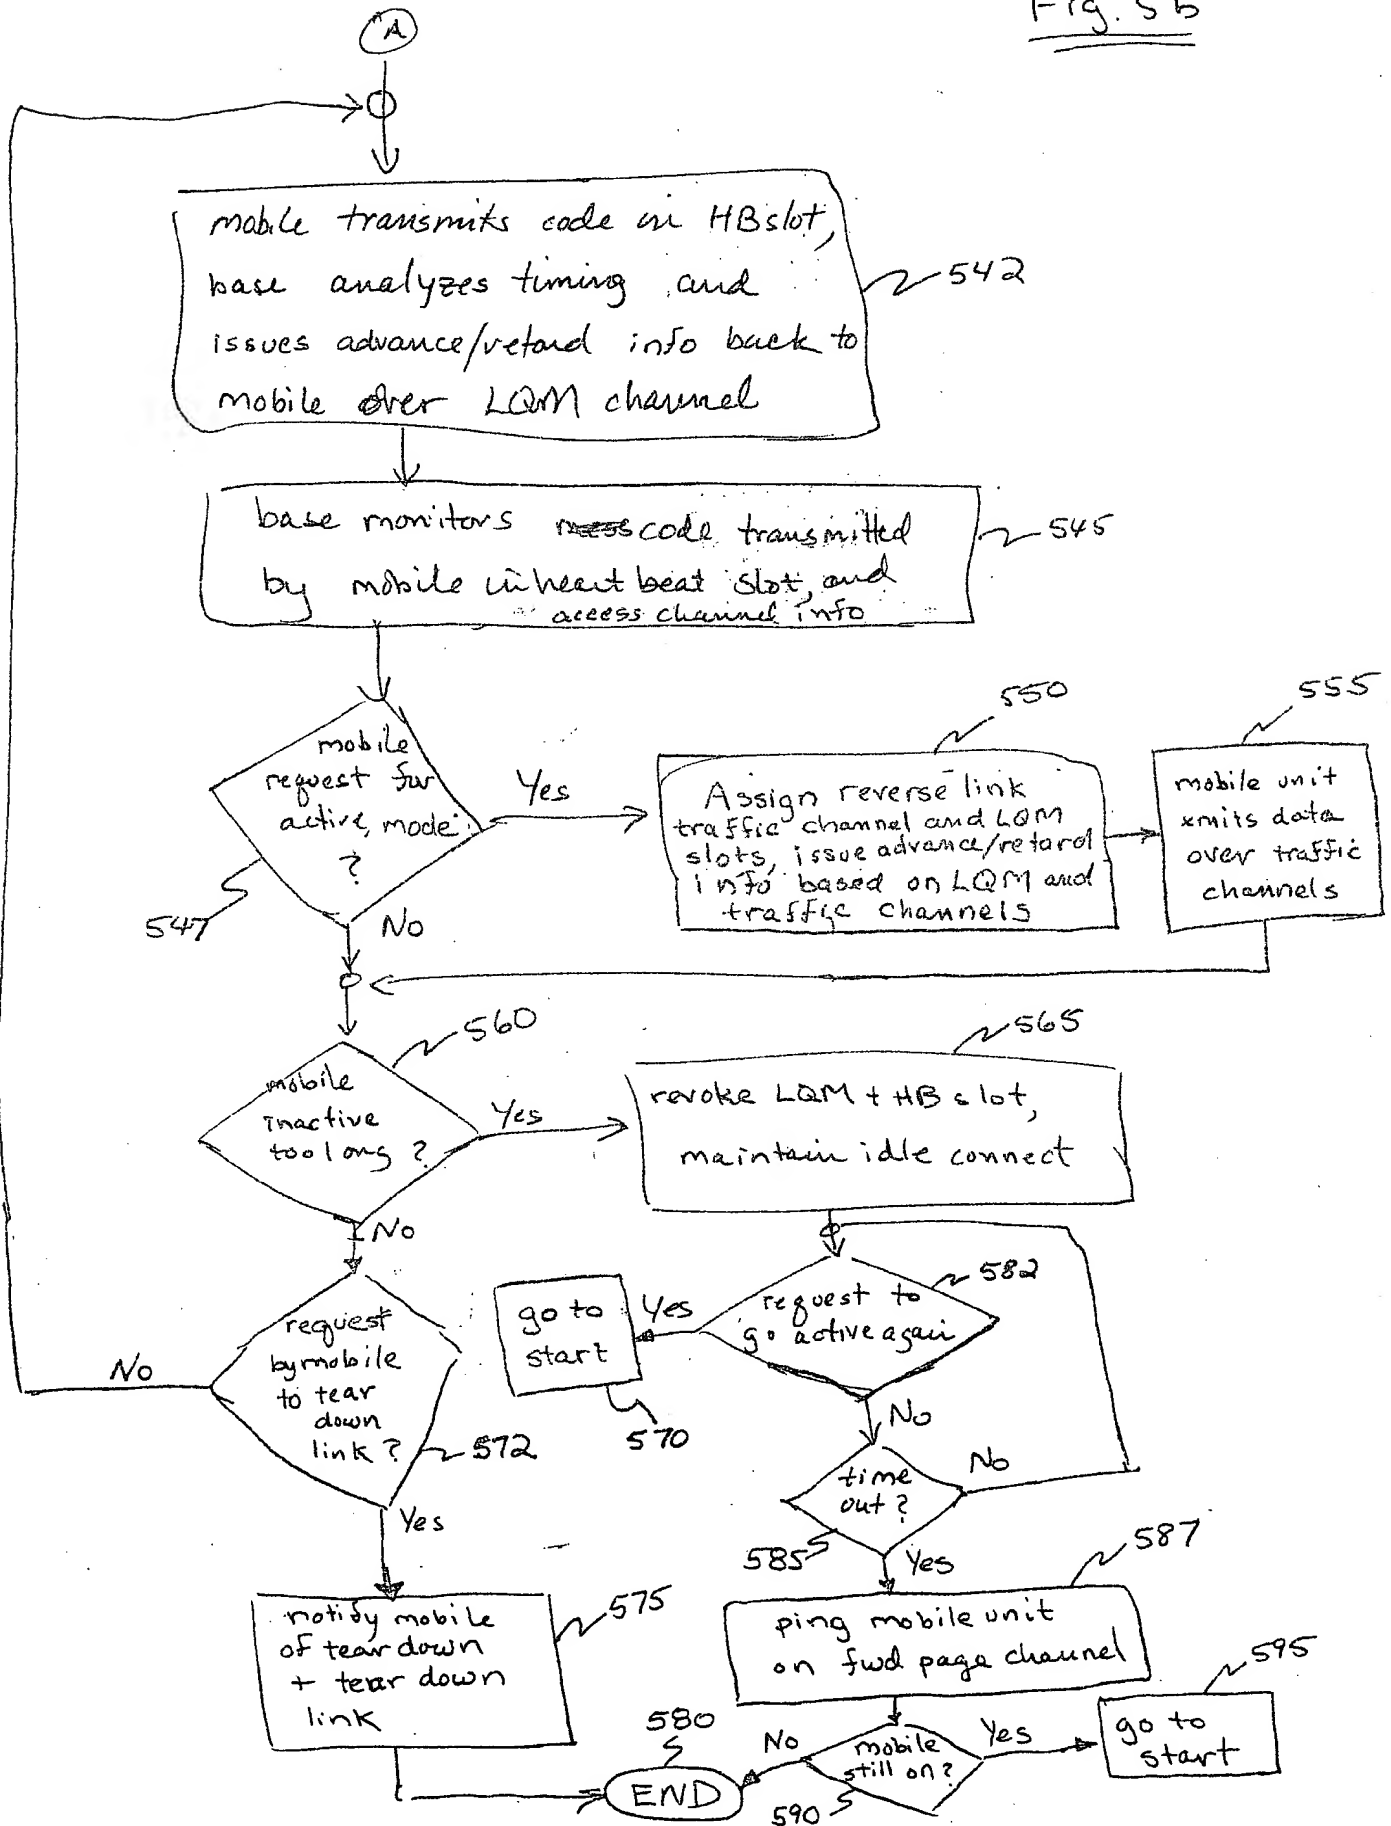 Fig. 5b
A
mobile transmits code in HB slot,
base analyzes timing and
issues advance/retard info back to
mobile over LQM channel
542
base monitors code transmitted
by mobile in heart beat slot, and
access channel info
545
mobile
request for
active mode
?
547
Yes
No
550
Assign reverse link
traffic channel and LQM
slots, issue advance/retard
info based on LQM and
traffic channels
555
mobile unit
xmits data
over traffic
channels
560
mobile
inactive
too long ?
Yes
No
565
revoke LQM + HB slot,
maintain idle connect
582
request to
go active again
Yes
No
go to
start
570
request
by mobile
to tear
down
link ?
572
No
Yes
time
out ?
585
No
Yes
587
ping mobile unit
on fwd page channel
575
notify mobile
of tear down
+ tear down
link
580
END
mobile
still on ?
590
No
Yes
595
go to
start